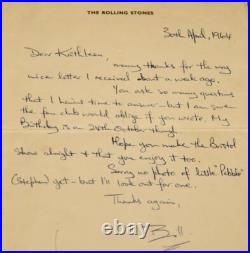 THE ROLLING STONES
30th April, 1964
Dear Kathleen,
many thanks for the very
nice letter I received about a week ago.
You ask so many questions
that I haven't time to answer - but I am sure
the fan club would oblige if you wrote. My
Birthday is on 24th October though.
Hope you make the Bristol
show alright & that you enjoy it too.
Sorry no photo of little "Pebble"
(Stephen) yet - but I'll look out for one.
Thanks again,
Bill
stamps-auction.com